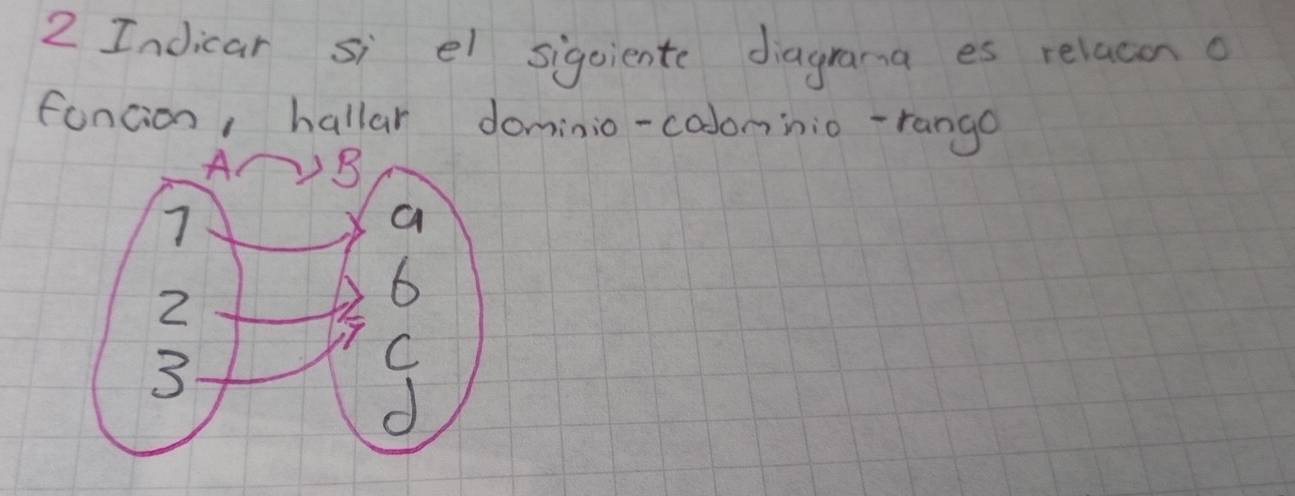 2 Indicar si el siguiente diagrama es relacon o
funcion, hallar dominio - codominio - rango
A B
1 a
2 b
3 c
d